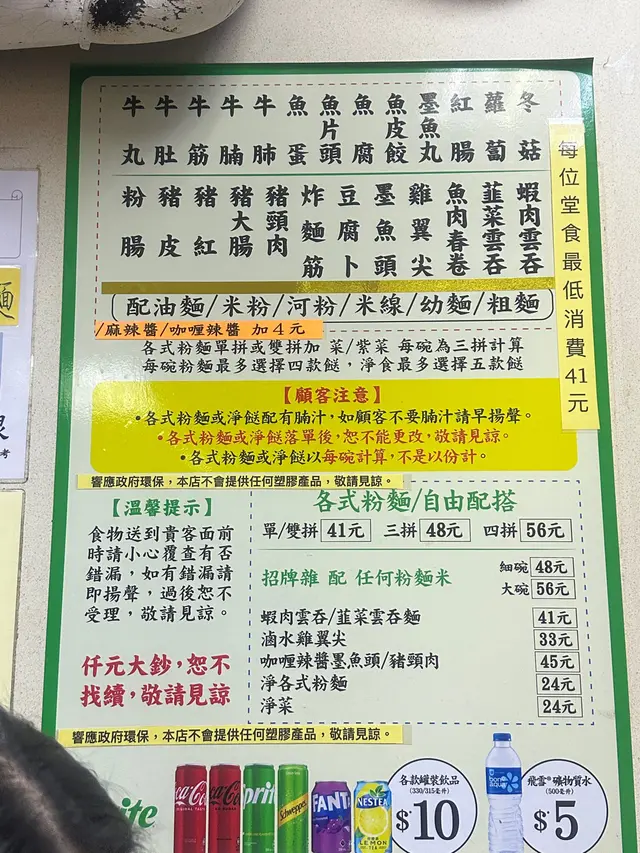 牛丸 牛肚 牛筋 牛腩 牛肺 魚蛋 魚片頭 魚腐 魚皮餃 墨魚丸 紅腸 蘿蔔 冬菇
粉腸 豬皮 豬紅 豬大腸 豬頸肉 炸麵筋 豆腐卜 墨魚頭 雞翼尖 魚肉春卷 韮菜雲吞 蝦肉雲吞
每位堂食最低消費41元
配油麵/米粉/河粉/米線/幼麵/粗麵
/麻辣醬/咖喱辣醬 加4元
各式粉麵單拼或雙拼加 菜/紫菜 每碗為三拼計算
每碗粉麵最多選擇四款餸,淨食最多選擇五款餸
【顧客注意】
•各式粉麵或淨餸配有腩汁,如顧客不要腩汁請早揚聲。
•各式粉麵或淨餸落單後,恕不能更改,敬請見諒。
•各式粉麵或淨餸以每碗計算,不是以份計。
響應政府環保,本店不會提供任何塑膠產品,敬請見諒。
【溫馨提示】
食物送到貴客面前
時請小心覆查有否
錯漏,如有錯漏請
即揚聲,過後恕不
受理,敬請見諒。
仟元大鈔,恕不
找續,敬請見諒
各式粉麵/自由配搭
單/雙拼 41元 三拼 48元 四拼 56元
招牌雜 配 任何粉麵米
細碗 48元
大碗 56元
蝦肉雲吞/韮菜雲吞麵 41元
滷水雞翼尖 33元
咖喱辣醬墨魚頭/豬頸肉 45元
淨各式粉麵 24元
淨菜 24元
響應政府環保,本店不會提供任何塑膠產品,敬請見諒。
Schweppes
FANT
NESTEA
LEMON
TEA
bon
aqua
各款罐裝飲品
(330/315毫升)
$10
飛雪®礦物質水
(500毫升)
$5
麵
考